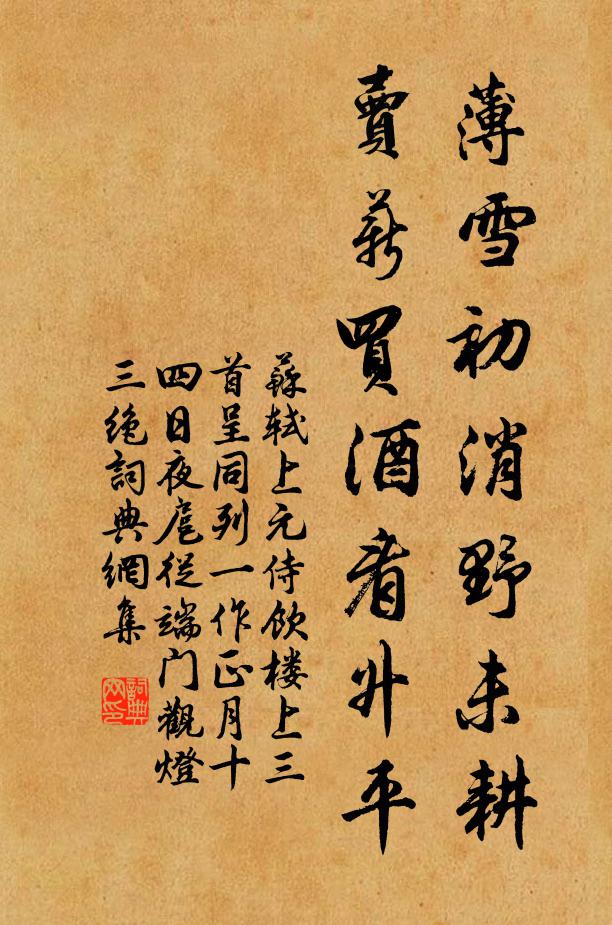 薄雪初消野未耕
賣薪買酒看升平
蘇軾上元侍飲楼上三
首呈同列一作正月十
四日夜扈從端门觀燈
三絶詞典網集
詞典
网印